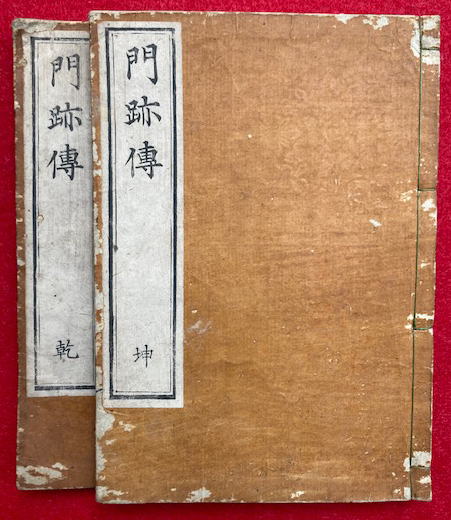 門跡傳
坤
門跡傳
乾